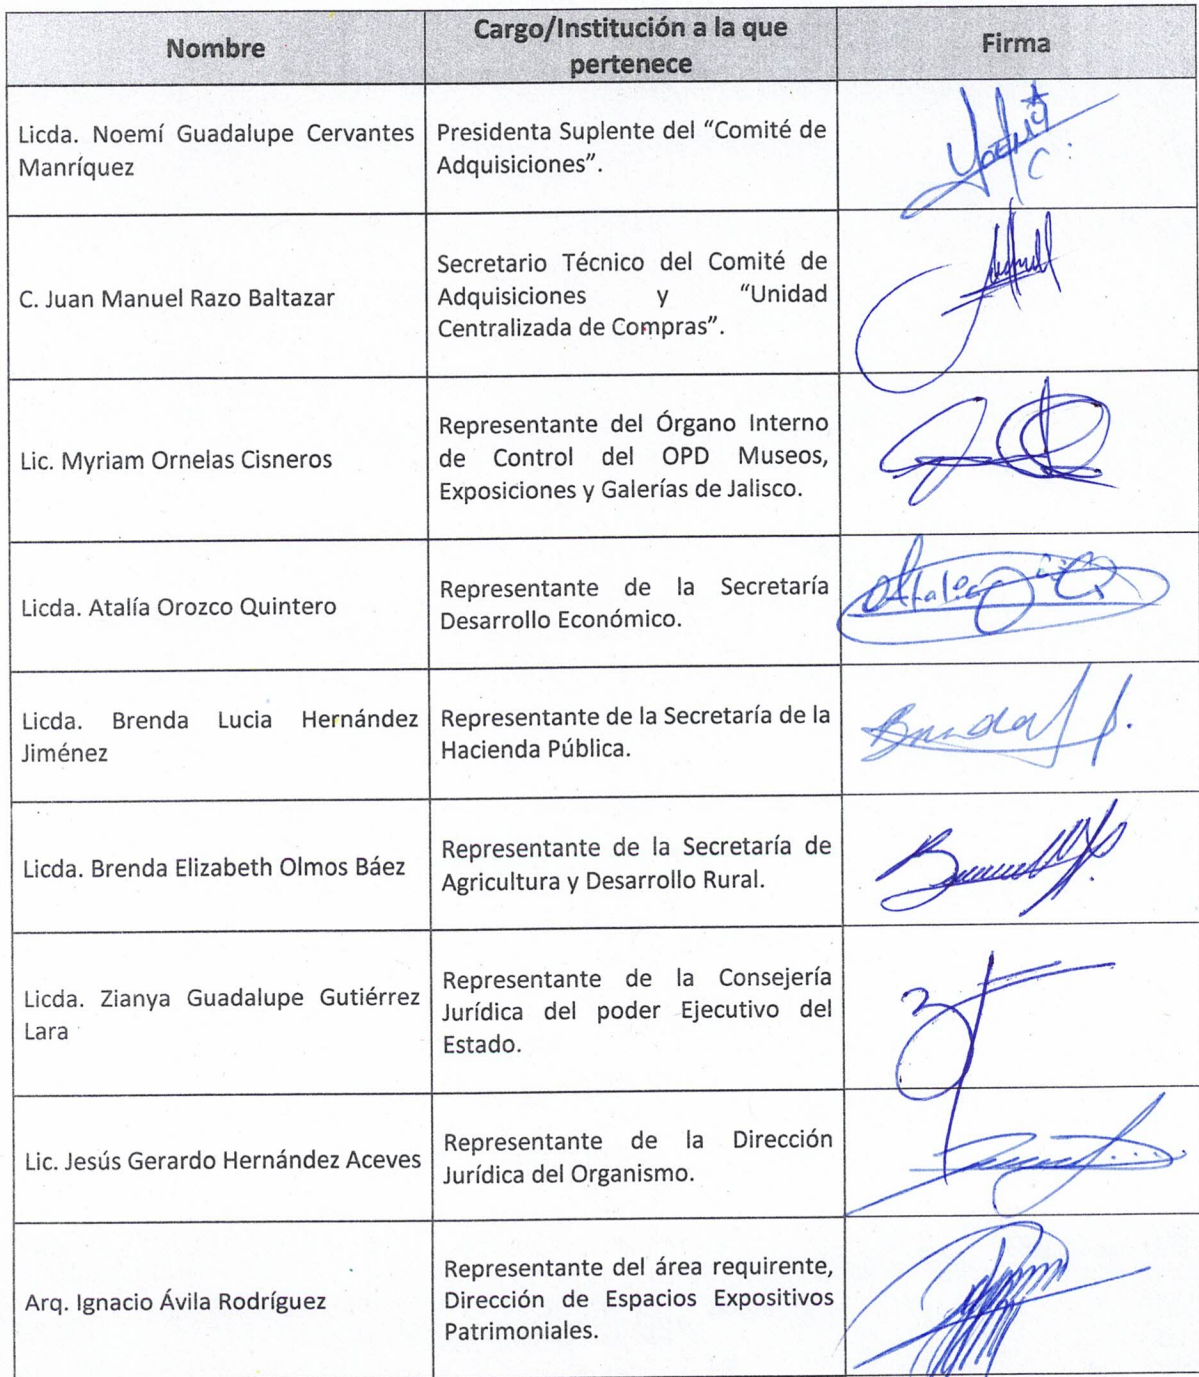 Nombre
Cargo/Institución a la que
pertenece
Firma
Licda. Noemí Guadalupe Cervantes
Manríquez
Presidenta Suplente del “Comité de
Adquisiciones”.
C. Juan Manuel Razo Baltazar
Secretario Técnico del Comité de
Adquisiciones y “Unidad
Centralizada de Compras”.
Lic. Myriam Ornelas Cisneros
Representante del Órgano Interno
de Control del OPD Museos,
Exposiciones y Galerías de Jalisco.
Licda. Atalía Orozco Quintero
Representante de la Secretaría
Desarrollo Económico.
Atalía
Licda. Brenda Lucia Hernández
Jiménez
Representante de la Secretaría de la
Hacienda Pública.
Brenda
Licda. Brenda Elizabeth Olmos Báez
Representante de la Secretaría de
Agricultura y Desarrollo Rural.
Licda. Zianya Guadalupe Gutiérrez
Lara
Representante de la Consejería
Jurídica del poder Ejecutivo del
Estado.
Lic. Jesús Gerardo Hernández Aceves
Representante de la Dirección
Jurídica del Organismo.
Arq. Ignacio Ávila Rodríguez
Representante del área requirente,
Dirección de Espacios Expositivos
Patrimoniales.